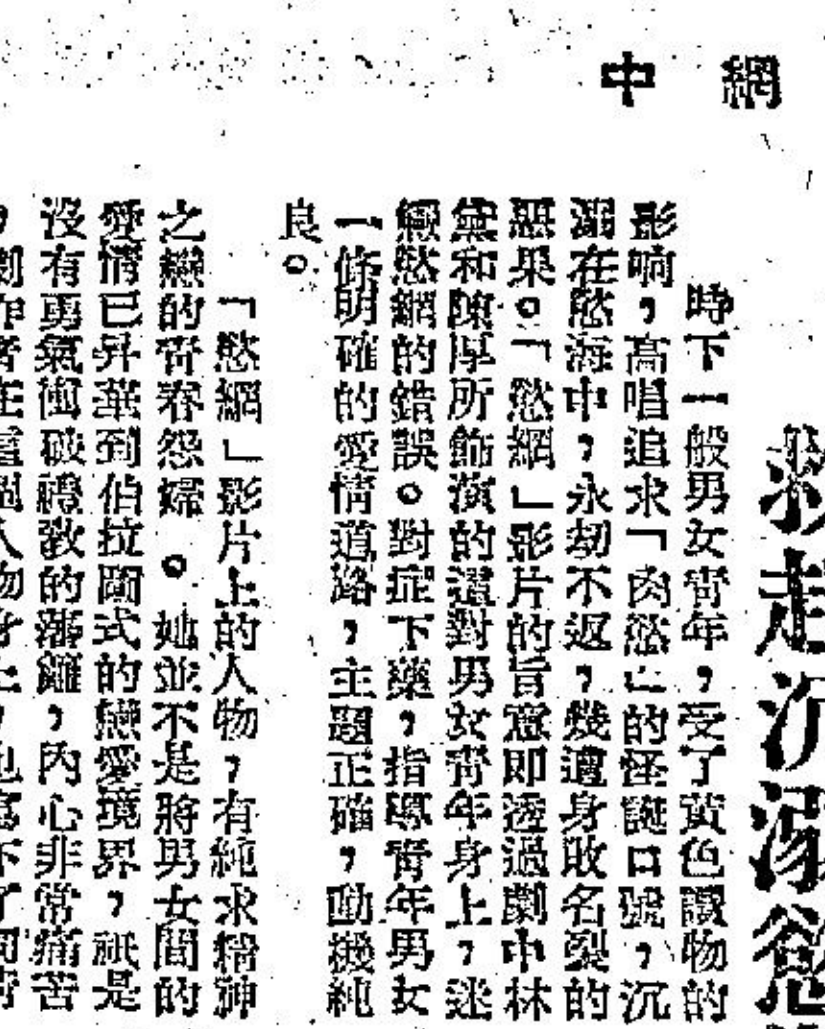 網中
救走沉溺慾
時下一般男女青年，受了黃色讀物的
影响，高唱追求「肉慾」的怪誕口號，沉
溺在慾海中，永刧不返，幾遭身敗名裂的
惡果。「慾網」影片的旨意即透過劇中林
黛和陳厚所飾演的這對男女青年身上，迷
戀慾網的錯誤。對症下藥，指導青年男女
一條明確的愛情道路，主題正確，動機純
良。
「慾網」影片上的人物，有純求精神
之戀的青春怨婦。她並不是將男女間的
愛情已昇華到伯拉圖式的戀愛境界，祇是
沒有勇氣衝破禮敎的藩籬，內心非常痛苦
，劇作者在這個人物身上，也寫下了